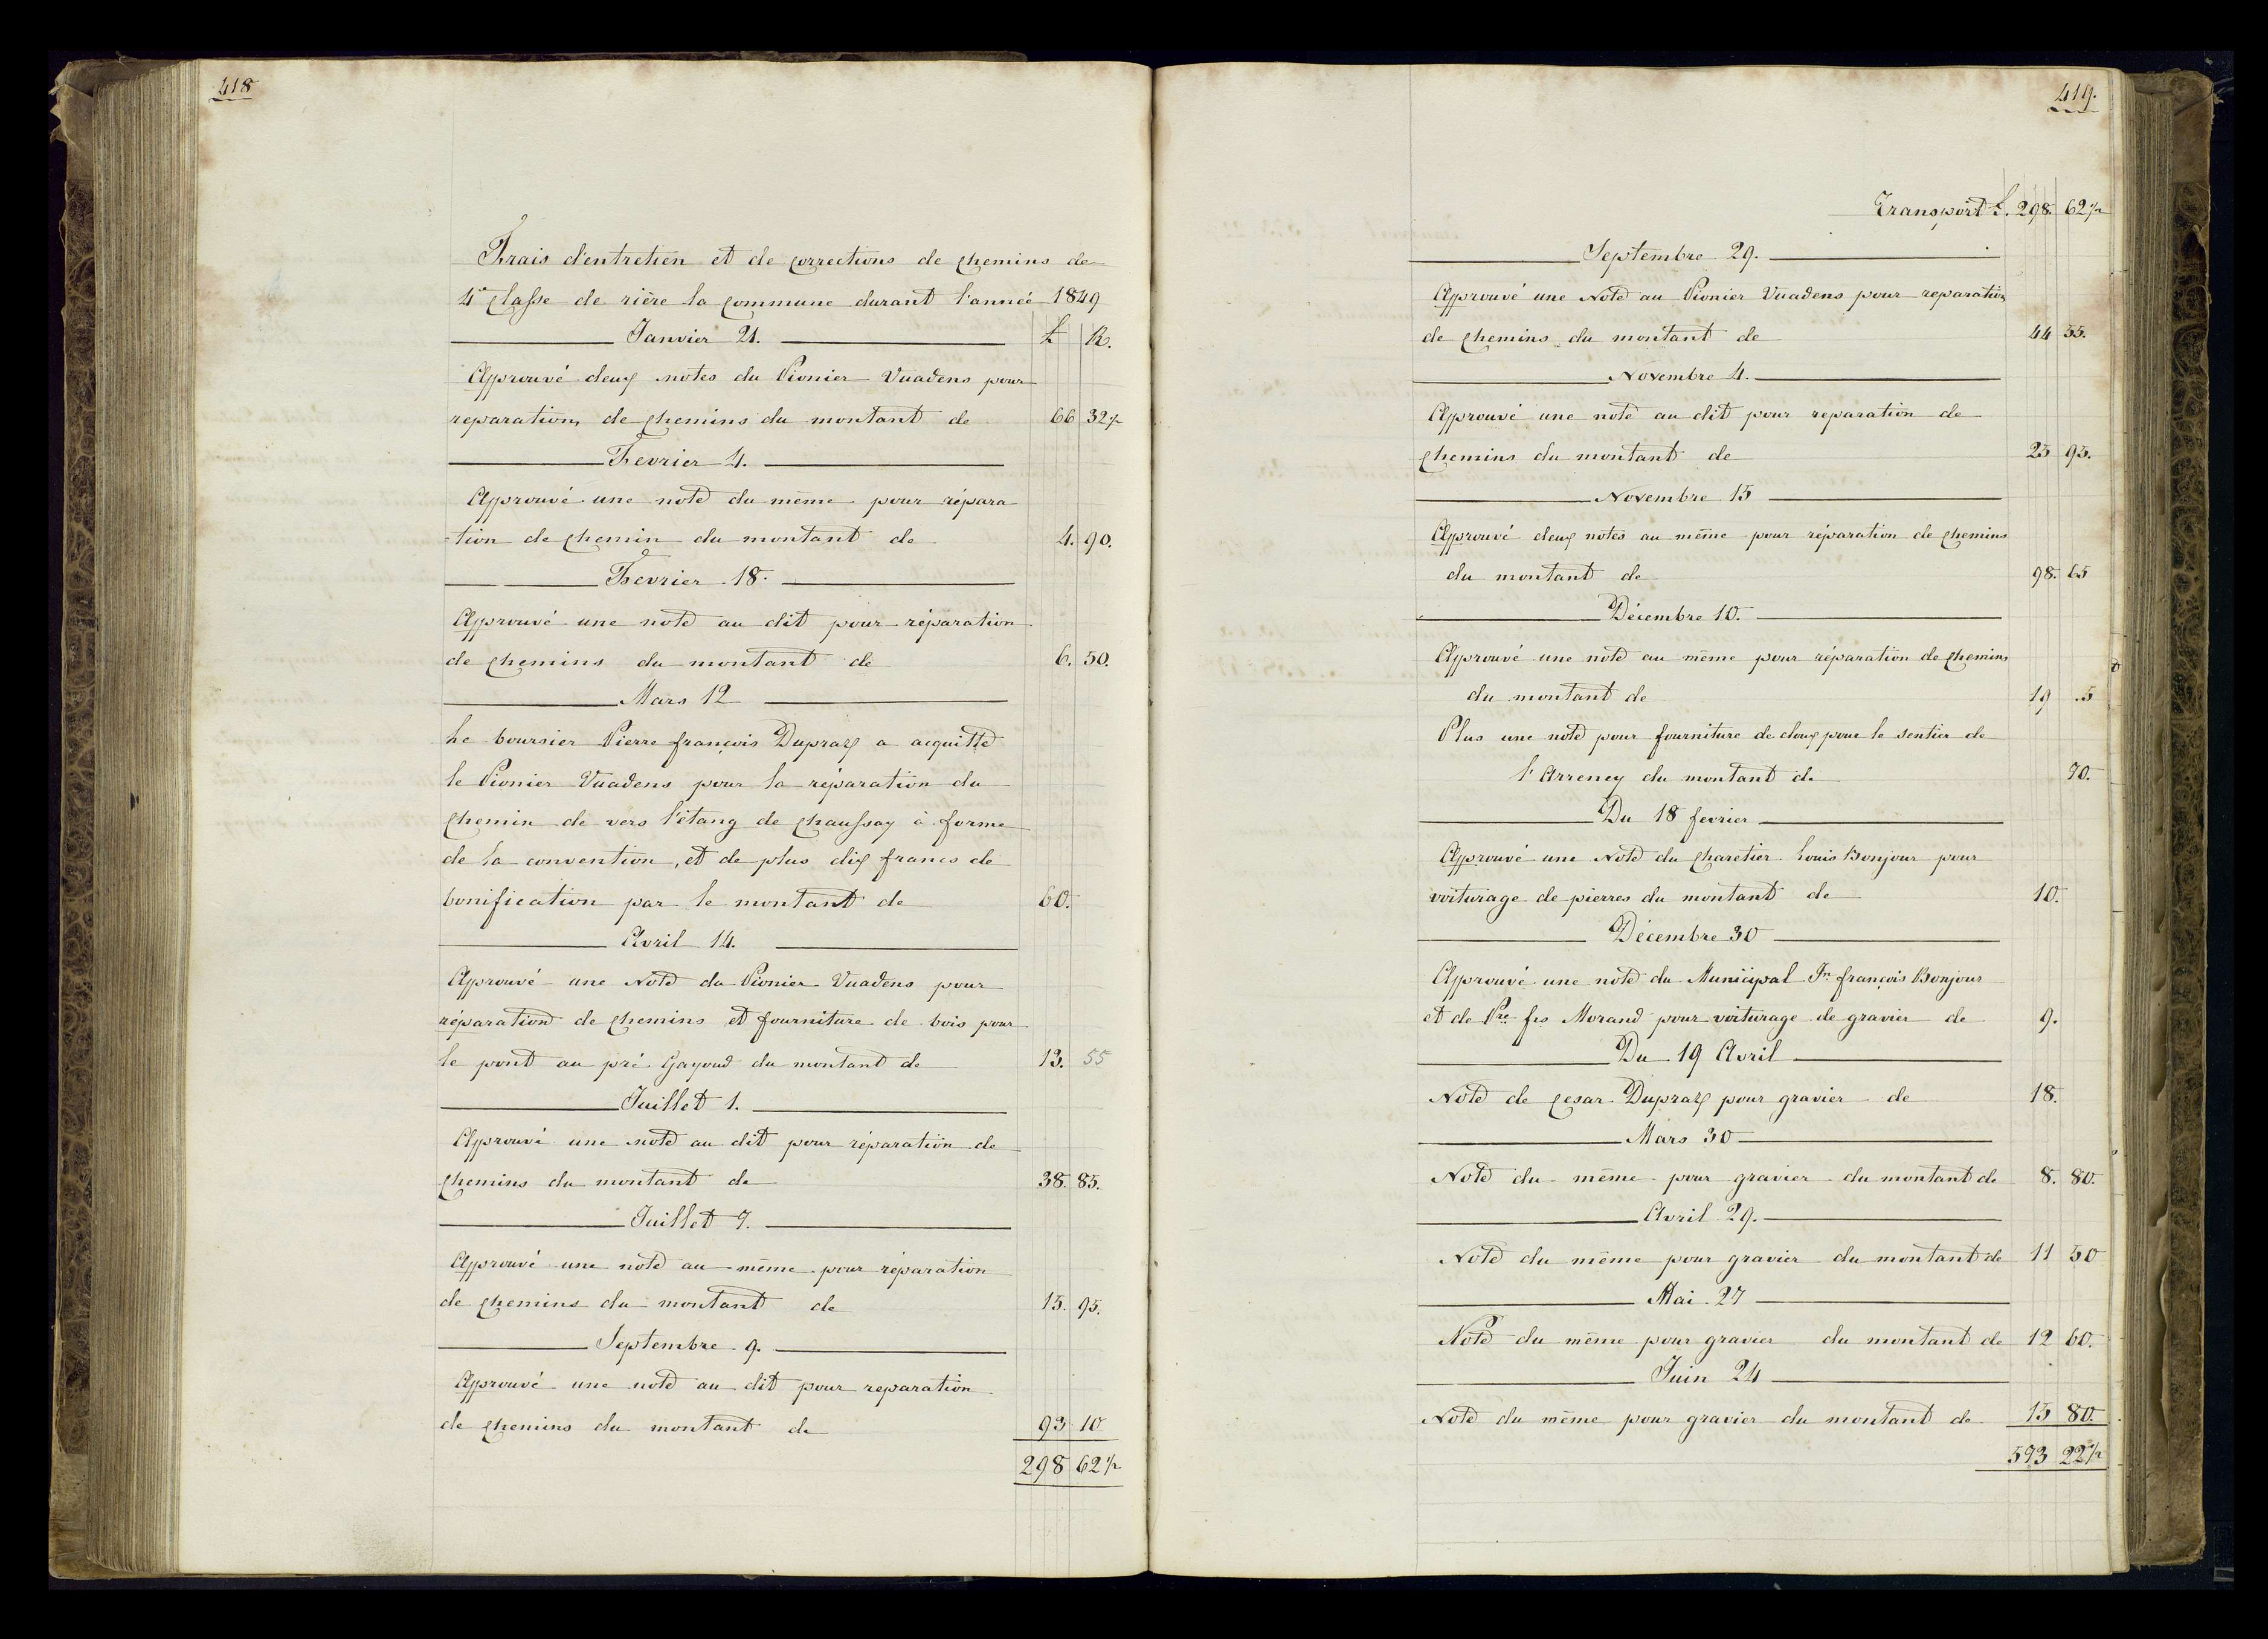 418
Frais d'entretien et de corrections de chemins de
4e Classe de rière la commune durant l'année 1849
Janvier 21. £ R.
Approuvé deux notes du Pionier Vuadens pour
reparations de chemins du montant de 66 32½
Fevrier 4.
Approuvé une note du même pour répara
tion de chemin du montant de 4. 90.
Fevrier 18.
Approuvé une note au dit pour réparation
de chemins du montant de 6. 50.
Mars 12
Le boursier Pierre françois Dupraz a acquitté
le Pionier Vuadens pour la réparation du
chemin de vers l'étang de Chaussay à forme
de la convention, et de plus dix francs de
bonification par le montant de 60.
Avril 14.
Approuvé une Note du Pionier Vuadens pour
réparation de chemins et fourniture de bois pour
le pont au pré Gayoud du montant de 13. 55
Juillet 1.
Approuvé une note au dit pour réparation de
chemins du montant de 38. 85.
Juillet 7.
Approuvé une note au même pour réparation
de chemins du montant de 15. 95.
Septembre 9.
Approuvé une note au dit pour reparation
de chemins du montant de 93 10
298 62½
419.
Transport £. 298. 62½
Septembre 29.
Approuvé une Note au Pionier Vuadens pour reparation
de chemins du montant de 44 55.
Novembre 4.
Approuvé une note au dit pour reparation de
chemins du montant de 25 95.
Novembre 15
Approuvé deux notes au même pour réparation de chemins
du montant de 98. 65
Décembre 10.
Approuvé une note au même pour réparation de chemins
du montant de 19 .5
Plus une note pour fourniture de cloux pour le sentier de
l'Arreney du montant de 70.
Du 18 fevrier
Approuvé une Note du charetier Louis Bonjour pour
voiturage de pierres du montant de 10.
Décembre 30
Approuvé une note du Municipal Jn françois Bonjour
et de Pre fs Morand pour voiturage de gravier de 9.
Du 19 Avril
Note de Cesar Dupraz pour gravier de 18.
Mars 30
Note du même pour gravier du montant de 8. 80.
Avril 29.
Note du même pour gravier du montant de 11 50
Mai 27
Note du même pour gravier du montant de 12 60.
Juin 24
Note du même pour gravier du montant de 15 80.
573 22½